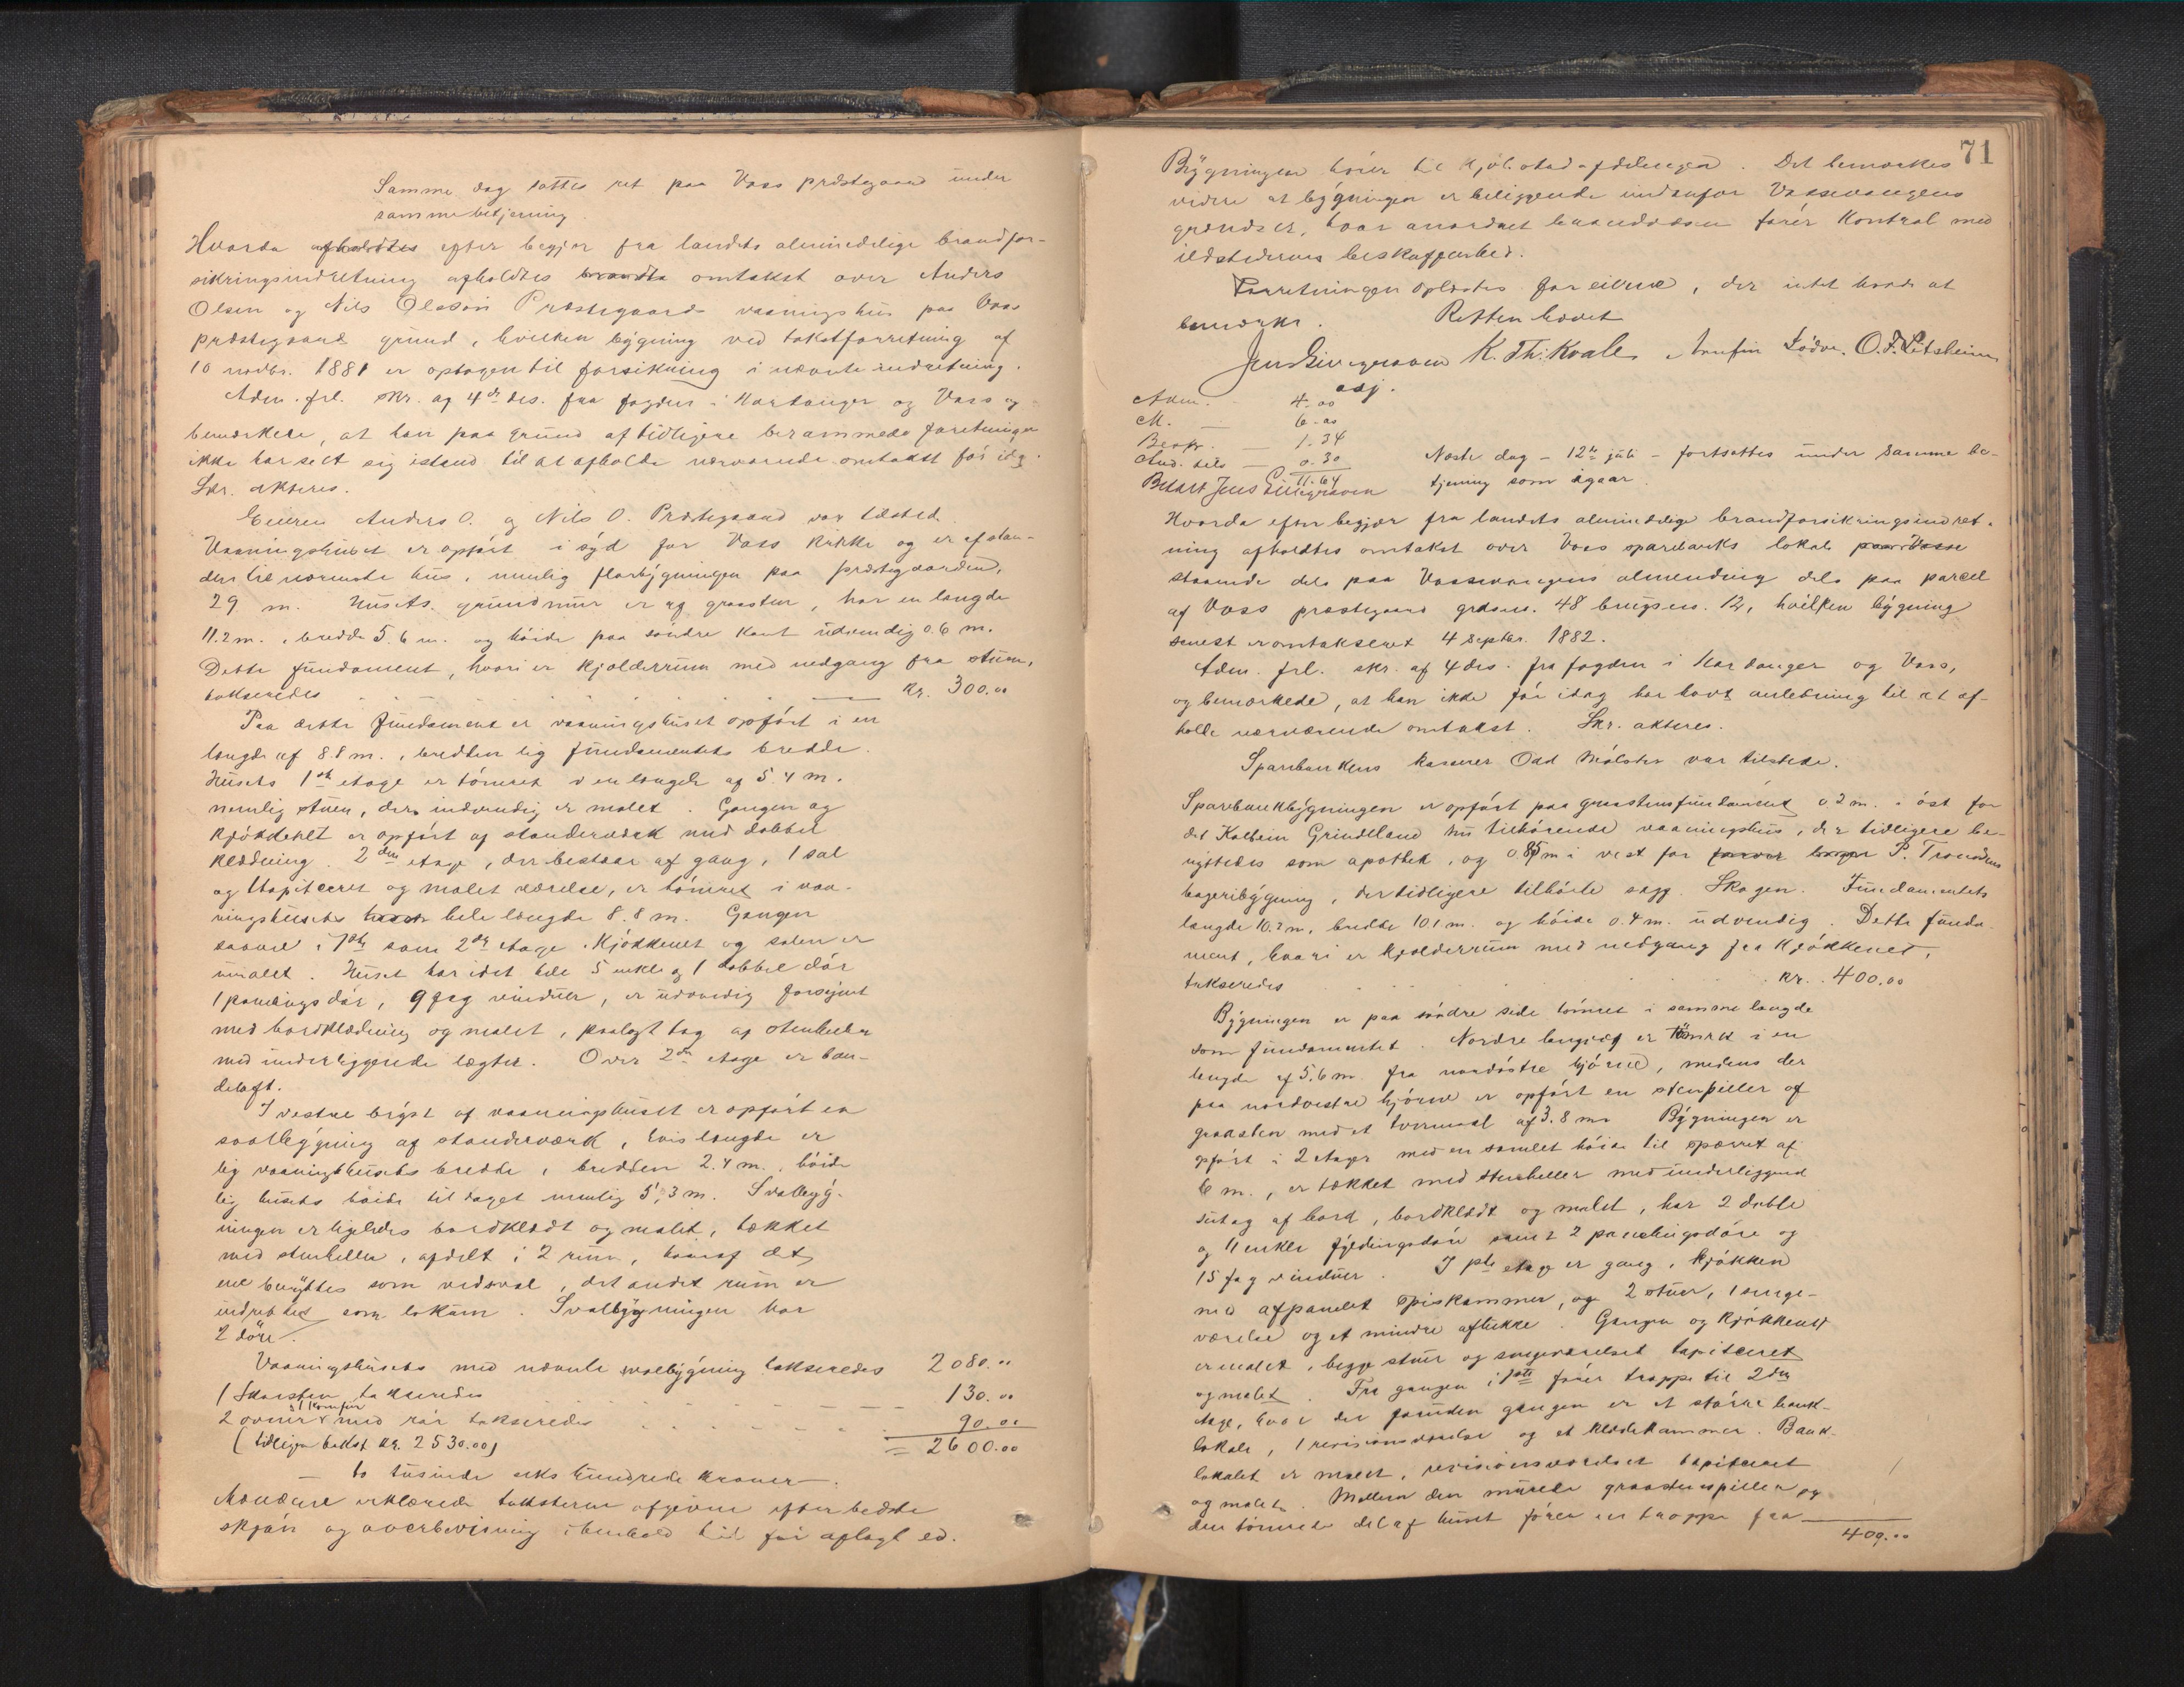 Samme dag sattes ret paa Voss præstegaard under
samme betjening.
Hvorda afholdtes efter begjær fra landets almindelige brandfor-
sikringsindretning afholdtes omtakst over Anders
Olsen og Nils Olsson Præstegaards vaaningshus paa Voss
præstegaards grund, hvilken bygning ved takstforretning af
10 novbr. 1881 er optagen til forsikring i nævnte indretning.
Adm. frl. skr. af 4de ds. fra fogden i Hardanger og Voss og
bemærkede, at han paa grund af tidligere berammede forretninger
ikke har seet sig istand til at afholde nærværende omtakst før idag.
Skr. akteres.
Eieren Anders O. og Nils O. Præstegaard var tilsted.
Vaaningshuset er opført i syd for Voss kirke og er afstan-
den til nærmeste hus, nemlig florbygningen paa præstegaarden,
29 m. Husets grundmur er af graasten, har en længde
11.2 m., bredde 5.6 m. og høide paa søndre kant udvendig 0.6 m.
Dette fundament, hvori er kjælderrum med nedgang fra stuen,
takseredes Kr. 300.00
Paa dette fundament er vaaningshuset opført i en
længde af 8.8 m., bredden lig fundamentets bredde.
Husets 1ste etage er tømret i en længde af 5.4 m.
nemlig stuen, der indvendig er malet. Gangen og
kjøkkenet er opført af standerværk med dobbel
klædning. 2den etage, der bestaar af gang, 1 sal
og 1 tapitceret og malet værelse, er tømret i vaa-
ningshusets hele længde 8.8 m. Gangen
saavel i 1ste som 2den etage. Kjøkkenet og salen er
umalet. Huset har idet hele 5 enkle og 1 dobbel dør
1 panelingsdør, 9 fag vinduer, er udvendig forsynet
med bordklædning og malet, paalagt tag af stenheller
med underliggende lægter. Over 2den etage er bon-
deloft.
I vestre bryst af vaaningshuset er opført en
svalbygning af standerværk, hvis længde er
lig vaaningshusets bredde, bredden 2.4 m., høide
lig husets høide til taget nemlig 5,3 m. Svalbyg-
ningen er ligeledes bordklædt og malet, tækket
med stenheller, afdelt i 2 rum, hvoraf det
ene benyttes som vedsval, det andet rum er
indrettet som lokum. Svalbygningen har
2 døre.
Vaaningshusets med nævnte svalbygning takseredes 2080.00
1 Skorsten takseredes 130.00
og 1 komfur
2 ovner med rør takseredes 90.00
(tidligere takst kr. 2530.00) = 2600.00
— to tusinde seks hundrede kroner —.
Mændene erklærede taksterne afgivne efter bedste
skjøn og overbevisning i henhold til før aflagt ed.
71
Bygningen hører til kjøbstadafdelingen. Det bemærkes
videre at bygningen er beliggende indenfor Vossevangens
grændser, hvor anordnet brandvæsen fører kontrol med
ildstedernes beskaffenhed.
Forretningen oplæstes for eierne, der intet havde at
bemærke. Retten hævet
Jens Gjernegraven K. Th. Kvale Arnfin Lødve. O. F. Litsheim
adj.
Adm. 4.00
M. — 6.00
Besp. — 1.34
And. dels — 0.30
11.64
Betalt Jens
Næste dag – 12te juli – fortsattes under samme be-
tjening som igaar.
Hvorda efter begjær fra landets almindelige brandforsikringsindret-
ning afholdtes omtakst over Voss sparebanks lokale paa Vosse
staaende dels paa Vossevangens almending dels paa parcel
af Voss præstegaard grdsno. 48 brugsno. 12, hvilken bygning
senest er omtakseret 4 septbr. 1882.
Adm. frl. skr. af 4 ds. fra fogden i Hardanger og Voss,
og bemærkede, at han ikke før idag har havt anledning til at af-
holde nærværende omtakst. Skr. akteres.
Sparebankens kasserer Odd Mølster var tilstede.
Sparebankbygningen er opført paa graastensfundament 0.2 m. i øst for
det Kolbein Grindlland nu tilhørende vaaningshus, der tidligere be-
nyttedes som apothek, og 0.85 m i vest for P. Tronsdens
bageribygning, der tidligere tilhørte sagf. Skogen. Fundamentets
længde 10.2 m, bredde 10.1 m. og høide 0.4 m. udvendig. Dette funda-
ment, hvori er kjælderrum med nedgang fra kjøkkenet,
takseredes Kr. 400.00
Bygningen er paa søndre side tømret i samme længde
som fundamentet. Nordre langvæg er tømret i en
længde af 5.6 m. fra nordøstre hjørne, medens der
paa nordvestre hjørne er opført en stenpiller af
graasten med et tvermaal af 3.8 m. Bygningen er
opført i 2 etager med en samlet høide til sparret af
6 m., er tækket med stenheller med underliggende
sutag af bord, bordklædt og malet, har 2 doble
og 11 enkle fyldingsdøre samt 2 panelingsdøre og
15 fag vinduer. I 1ste etage er gang, kjøkken
med afpanelet spiskammer, og 2 stuer, 1 senge-
værelse og et mindre aflukke. Gangen og kjøkkenet
er malet, begge stuer og sengeværelset tapitceret
og malet. Fra gangen i 1ste fører trappe til 2den
etage, hvor der foruden gangen er et større bank-
lokale, 1 revisionsværelse og et klædekammer. Bank-
lokalet er malet, revisionsværelset tapitceret
og malet. Mellem den murede graastenspiller og
den tømrede del af huset fører en trappe fra
400.00